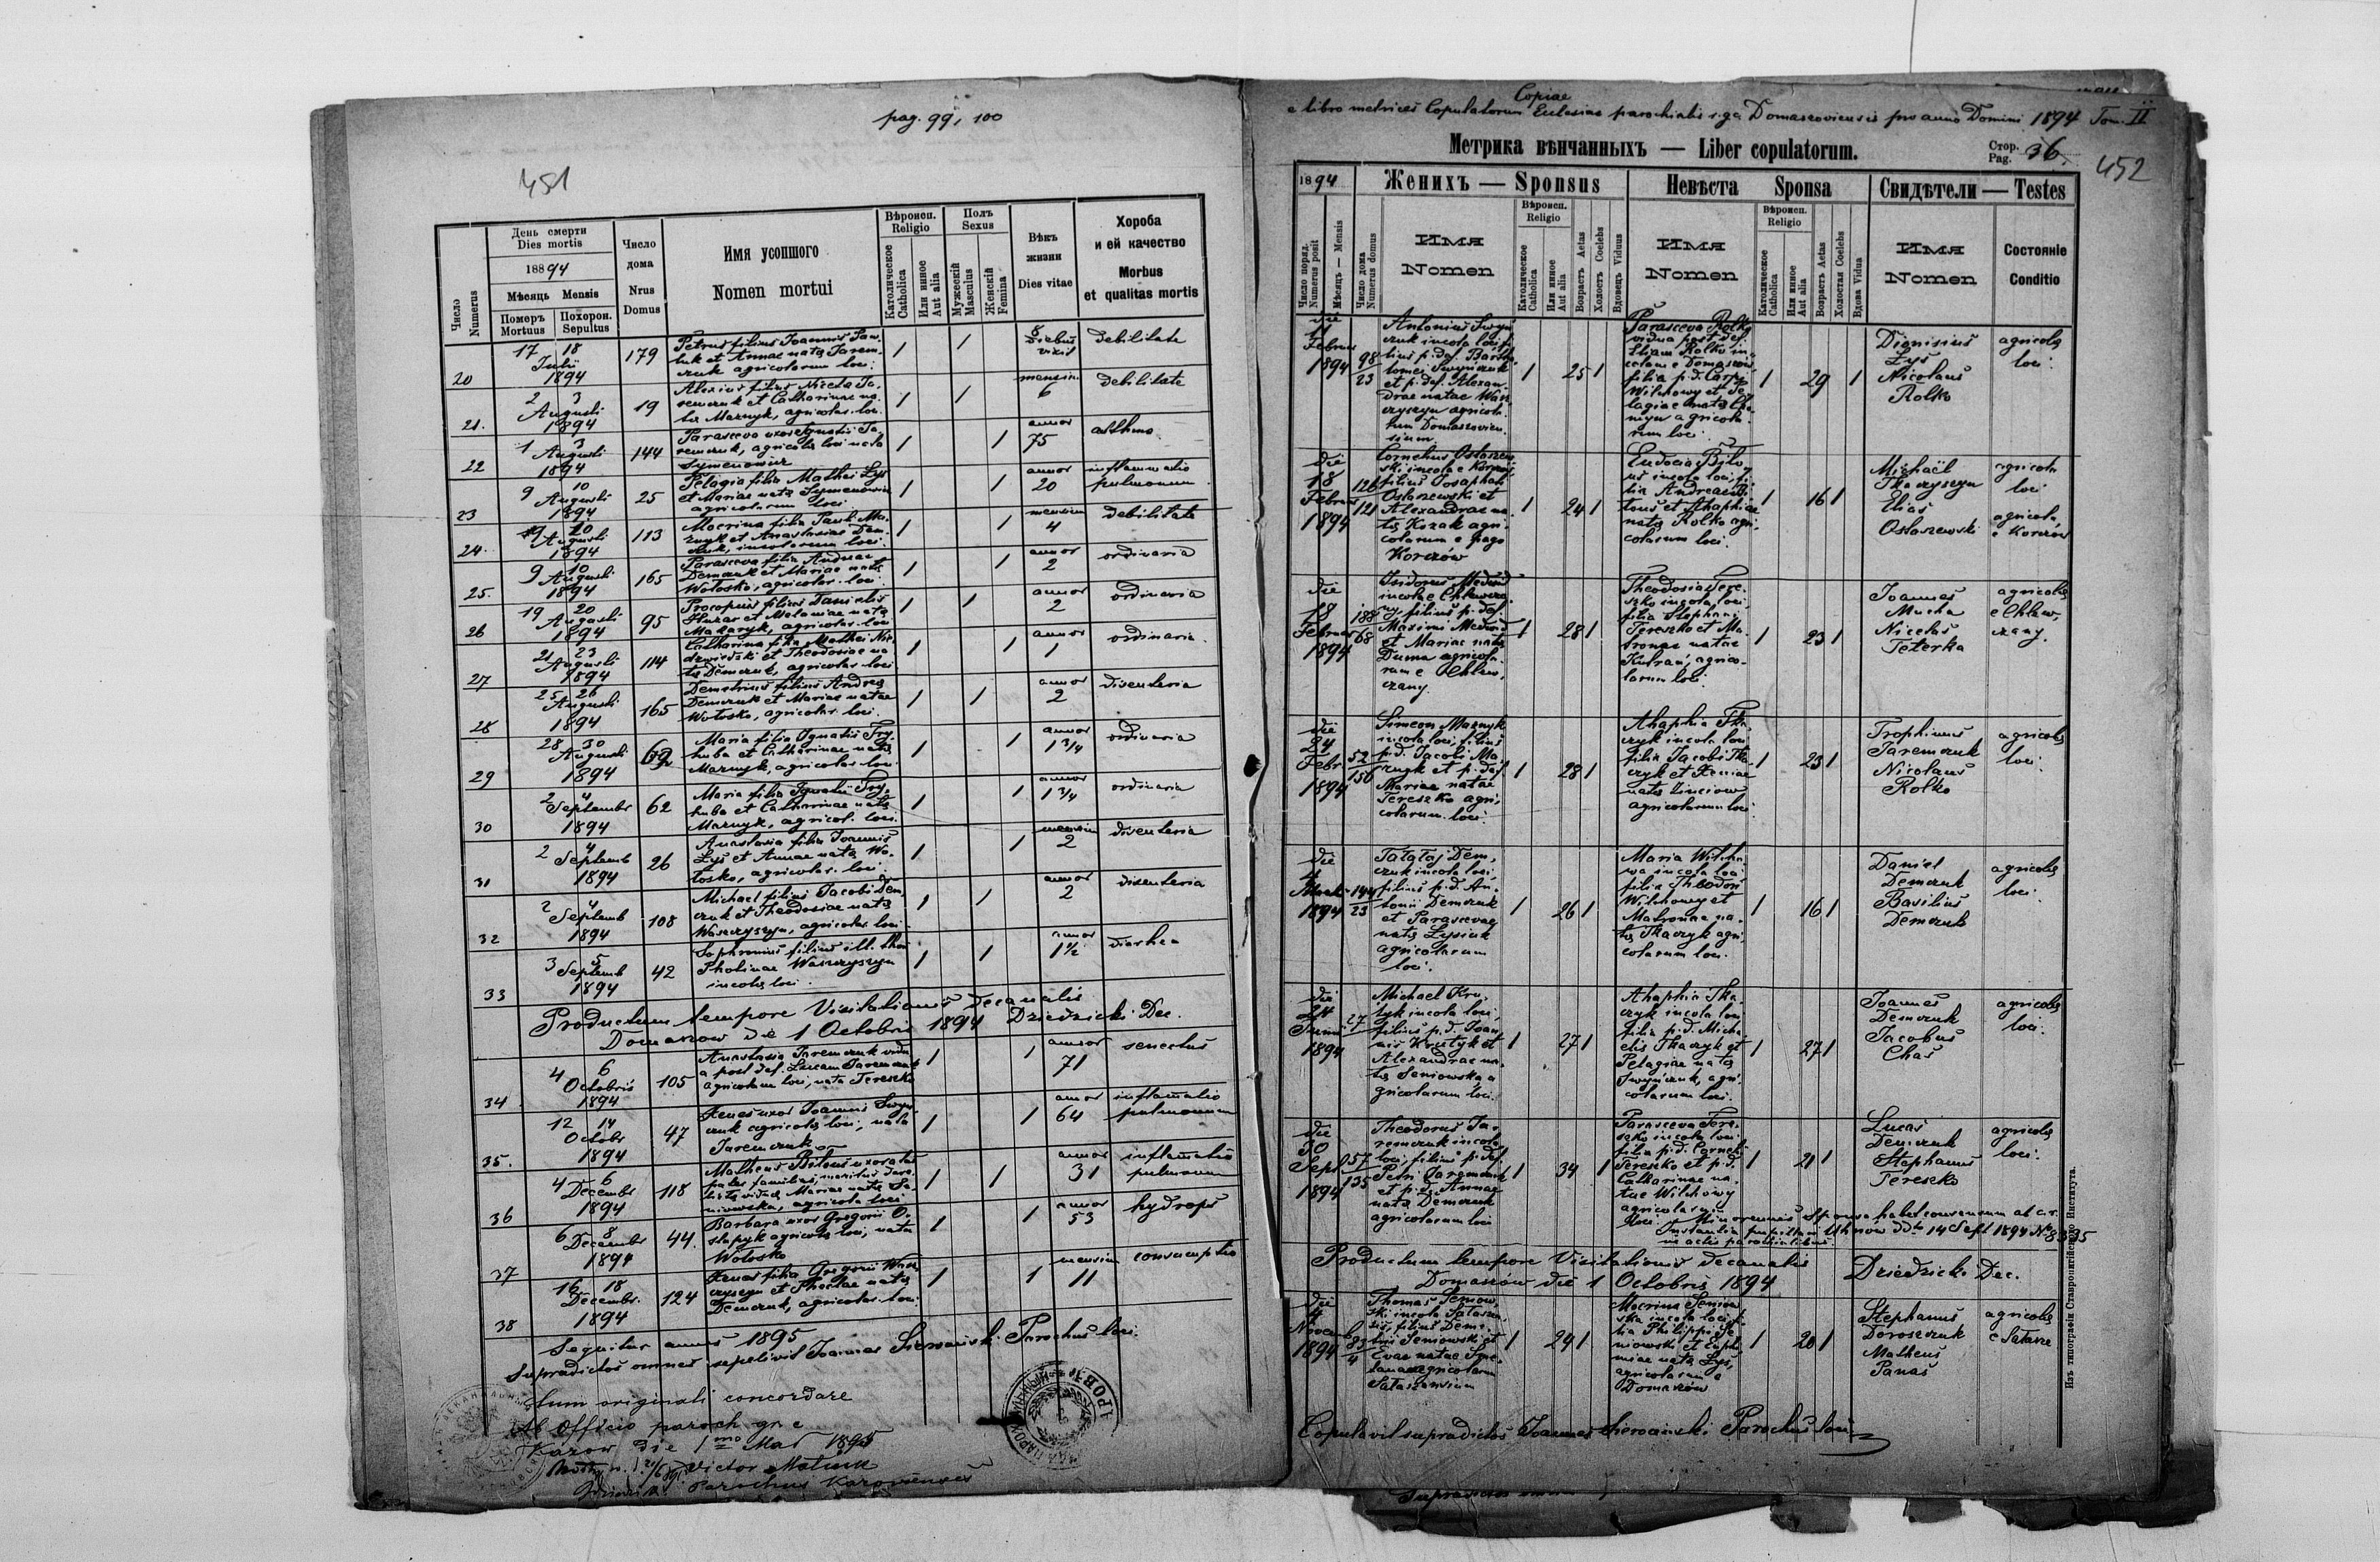 pag. 99, 100
451
Число
Numerus
День смерти
Dies mortis
1894
Мѣсяць Mensis
Померъ
Mortuus
Похорон.
Sepultus
Число
дома
Nrus
Domus
Имя усопшого
Nomen mortui
Вѣроисп.
Religio
Католическое
Catholica
Или инное
Aut alia
Полъ
Sexus
Мужескій
Masculus
Женскій
Femina
Вѣкъ
жизни
Dies vitae
Хороба
и ей качество
Morbus
et qualitas mortis
20
17 18
Julii
1894
179
Petrus filius Joannis
et Annae nata Jarem,
czuk agricolarum loci.
8
diebus
vixit
debilitate
21.
2 3
Augusti
1894
19
Alexius filius Nicetae Ja,
remczuk et Catharinae na,
ta Maznyk, agricolar. loci.
mensium
6
debilitate
22
1 3
Augusti
1894
144
Parasceva uxor Ignatii Ja,
remczuk, agricolae loci nata
Symenowicz
annor
75
asthma
23
9 10
Augusti
1894
25
Pelagia filia Mathei Lys
et Mariae nata Symenowicz
agricolarum loci.
annor
20
inflammatio
pulmonum
24.
10
Augusti
1894
113
Macrina filia Pauli Ma,
znyk et Anastasiae Dem,
czuk, incolarum loci.
mensium
4
debilitate
25.
9 10
Augusti
1894
165
Parasceva filia Andreae
Demczuk et Mariae nata
Wolosko, agricolar. loci.
annor
2
ordinaria
26
19 20
Augusti
1894
95
Procopius filius Danielis
Huzar et Melaniae nata
Makaryk, agricolar. loci
annor
2
ordinaria
27
21 23
Augusti
1894
114
Catharina filia Mathei Nie,
dzwiedzki et Theodosiae na
ta Demczuk, agricolar. loci
annor
1
ordinaria.
28
25 26
Augusti
1894
165
Demetrius filius Andreae
Demczuk et Mariae natae
Wolosko, agricolar. loci.
annor
2
disenteria
29
28 30
Augusti
1894
62
Maria filia Ignatii Try,
huba et Catharinae nata
Maznyk, agricolar. loci
annor
1 3/4
ordinaria
30
2 4
Septembr
1894
62
Maria filia Ignatii Try,
huba et Catharinae nata
Maznyk, agricol. loci.
annor
1 3/4
ordinaria
31
2 4
Septemb
1894
26
Anastasia filia Joannis
Lys et Annae nata Wo,
losko, agricolar. loci.
mensium
2
disenteria
32
2 4
Septemb
1894
108
Michael filius Jacobi Dem,
czuk et Theodosiae nata
Waszczyszyn, agricolar. loci
annor
2
disenteria
33
3 5
Septemb
1894
42
Sophronius filius ill. thori
Pholinae Waszczyszyn
incolae loci.
annor
1 1/2
diarhea
Productum tempore Visitationis decanalis
Domaszow die 1 Octobris 1894 Dziedzicki Dec.
34
4 6
Octobris
1894
105
Anastasia Jaremczuk vidu,
a post def. Lucam Jaremczuk
agricolam loci, nata Tereszko
annor
71
senectus
35.
12 14
Octobr
1894
47
Xenes uxor Joannis
agricolae loci, nata
Jaremczuk
annor
64
inflamatio
pulmonum
36
4 6
Decembr
1894
118
Matheus Bilous uxoratus
pater familias, maritus
Mariae nata Se,
niowska, agricola loci
annor
31
inflamatio
pulmonum
37
6 8
Decembr
1894
44.
Barbara uxor Gregorii O,
stapyk agricolae loci, nata
Wolosko
annor
53
hydrops
38
16 18
Decembr.
1894
124
Xenes filia Gregorii Wasz,
czyszyn et Theclae nata
Demczuk, agricolar. loci.
mensium
11
consumptio
Sequitur annus 1895
Supradictos omnes sepelivit Joannes Sierocinski Parochus loci.
Cum originali concordare
Ab Officio paroch. gr. c.
Karow die 1mo Mai 1895
Victor Matiuk
Parochus Karoviensis
Copiae
e libro metrices Copulatorum Eclesiae parochialis r. g. c. Domaszoviensis pro anno Domini 1894 Tom. II
Метрика вѣнчанныхъ — Liber copulatorum.
Стор.
Pag. 36.
452
1894
Женихъ — Sponsus
Невѣста Sponsa
Свидѣтели — Testes
Число поряд.
Numerus posit
Мѣсяць — Mensis
Число дома
Numerus domus
Имя
Nomen
Вѣроисп.
Religio
Католическое
Catholica
Или инное
Aut alia
Возрастъ Aetas
Холостъ Coelebs
Вдовецъ Viduus
Имя
Nomen
Вѣроисп.
Religio
Католическое
Catholica
Или инное
Aut alia
Возрастъ Aetas
Холостая Coelebs
Вдова Vidua
Имя
Nomen
Состояніе
Conditio
die
11
Februar
1894
98
23
Antonius
incola loci, fi
lius p. def. Bartho,
lomei
et p. def. Alexan,
drae natae Wasz
czyszyn agricola,
rum Domaszovien,
sium
25
Parasceva Rolko
vidua post def.
Eliam Rolko in,
colam e Domaszow
filia p. d. Carpi
Wilchowy et Pe,
lagiae nata
agricola,
rum loci.
29
Dionisius
Lys
Nicolaus
Rolko
agricolae
loci.
die
18
Februar
1894
126
121
Cornelius Ostaszew
ski incola e Korczow
filius Josaphat
Ostaszewski et
Alexandrae na,
ta Kozak agri,
colarum e pago
Korczów
24
Eudocia Bilo,
us incola loci, fi,
lia Andreae Bi,
lous et Ahaphiae
nata Rolko agri,
colarum loci.
16
Michaël
Tkaczyszyn
Elias
Ostaszewski
agricola
loci
agricola
e Korczów
die
18
Februar
1894
188
68
Isidorus Medwid
incola e Chlewcza,
ny, filius p. def.
Maximi Medwid
et Mariae nata
Duma agricola,
rum e Chlew,
czany.
28
Theodosia Tere,
szko incola loci
filia Stephani
Tereszko et Ma,
tronae natae
Kudran, agrico,
larum loci.
23
Joannes
Mucha
Nicetas
Teterka
agricolae
e Chlew,
czany.
die
24
Febr
1894
52
156
Simeon Maznyk
incola loci, filius
p. d. Jacobi Ma,
znyk et p. def.
Mariae natae
Tereszko agri,
colarum loci.
28
Ahaphia Tka,
czyk incola loci
filia Jacobi Tka,
czyk et Xeniae
nata
agricolarum loci
23
Trophimus
Jaremczuk
Nicolaus
Rolko
agricolae
loci.
die
4
Marti
1894
144
23
Dem,
czuk incola loci,
filius p. d. An,
tonii Demczuk
et Parascevae
nata Lysiuk
agricolarum
loci.
26
Maria Wilcho,
wa incola loci
filia Theodori
Wilchowy et
Matronae na,
ta Tkaczyk agri,
colarum loci.
16
Daniel
Demczuk
Basilius
Demczuk
agricolae
loci.
die
24
Junii
1894
27
7
Michael Kru,
tyk incola loci,
filius p. d. Joan
nis Krutyk et
Alexandrae na,
ta Seniowska a
gricolarum loci.
27
Ahaphia Tka,
czyk incola loci
filia p. d. Micha,
elis Tkaczyk et
Pelagiae nata
agri,
colarum loci.
27
Joannes
Demczuk
Jacobus
Chas
agricolae
loci.
die
30
Sept
1894
57
135
Theodorus Ja,
remczuk incola
loci, filius p. def.
Petri Jaremczuk
et p. d. Annae
nata Demczuk
agricolarum loci
34
Parasceva Tere,
szko incola loci
filia p. d. Corneli
Tereszko et p. d.
Catharinae na,
tae Wilchowy
agricolarum
loci. Minorennis Sponsa habet consensum ab c. r.
Uhnów ddto 14 Sept 1894 No 8335
in actis parochialibus.
21
Lucas
Demczuk
Stephanus
Tereszko
agricolae
loci.
Productum tempore Visitationis decanalis
Domaszów die 1 Octobris 1894 Dziedzicki Dec.
die
4
Novemb
1894
89
4
Thomas Seniow,
ski incola Salasz,
filius Deme,
trii Seniowski et
Evae natae Sme,
agricolarum
Salaszensium
24
Macrina Seniow,
ska incola loci fi,
lia Philippi Se,
niowski et Euphe,
miae nata Lys,
agricolarum e
Domaszów
20
Stephanus
Doroszczuk
Matheus
Panas
agricolae
e Salasze
Copulavit supradictos Joannes Sierocinski Parochus loci
Изъ типографіи Ставропигійского Института.